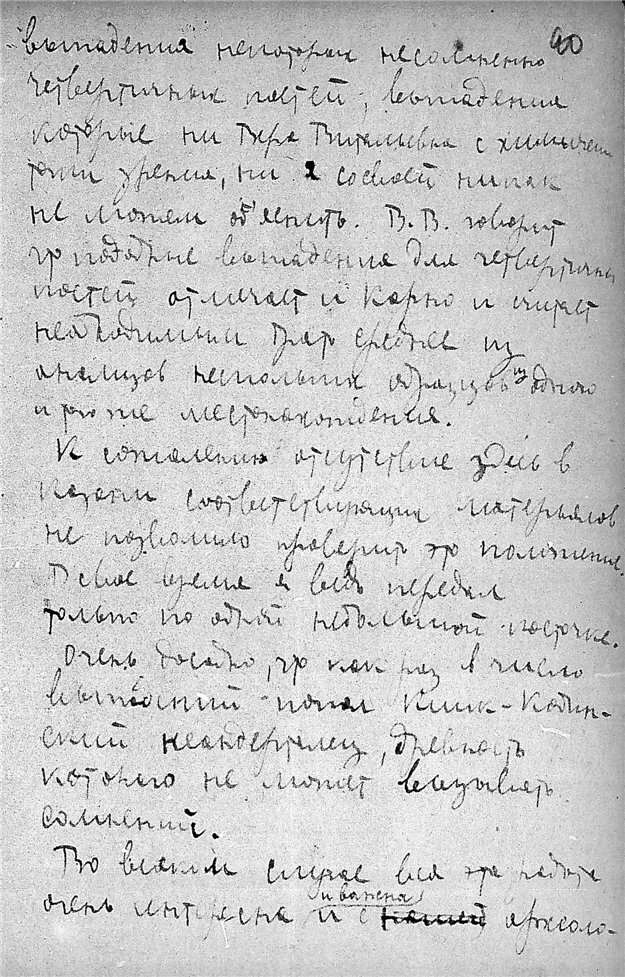 90
выпадения некоторых несомненно
четвертичных костей, выпадения
которые ни Вера Витальевна с химической
точки зрения, ни я со своей никак
не можем об'яснить. В.В. говорит
что подобные выпадения для четвертичных
костей отмечает и Карно и считает
необходимым брать среднее из
анализов нескольких образцов из одного
и того же местонахождения.
К сожалению отсутствие здесь в
Казани соответствующих материалов
не позволило проверить это положение.
В свое время я ведь передал
только по одной небольшой косточке.
Очень досадно, что как раз в число
выпадений попал Киик-Кобин-
ский неандерталец, древность
которого не может вызывать
сомнений.
Во всяком случае вся эта работа
очень интересна и важна и с нашей археоло-